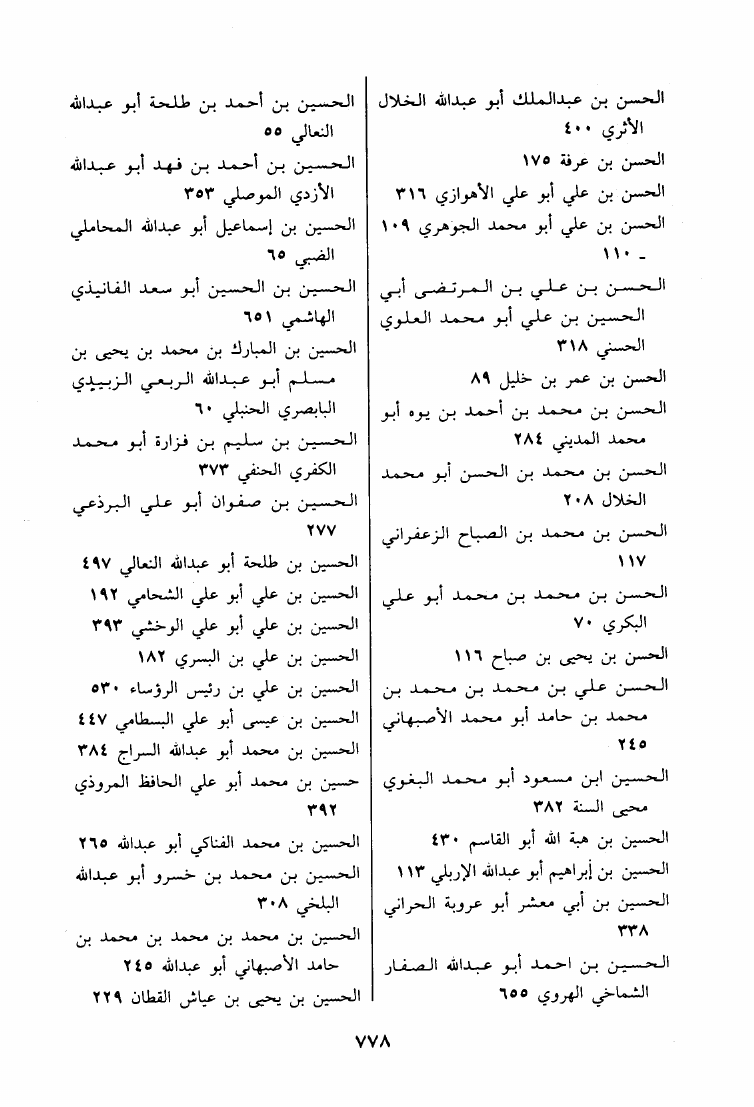 الحسن بن عبدالملك أبو عبدالله الخلال
الأثري ٤٠٠
الحسن بن عرفة ١٧٥
الحسن بن علي أبو علي الأهوازي ٣١٦
الحسن بن علي أبو محمد الجوهري ١٠٩
ـ ١١٠
الحسن بن علي بن المرتضى أبي
الحسين بن علي أبو محمد العلوي
الحسني ٣١٨
الحسن بن عمر بن خليل ٨٩
الحسن بن محمد بن أحمد بن يوه أبو
محمد المديني ٢٨٤
الحسن بن محمد بن الحسن أبو محمد
الخلال ٢٠٨
الحسن بن محمد بن الصباح الزعفراني
١١٧
الحسن بن محمد بن محمد أبو علي
البكري ٧٠
الحسن بن يحيى بن صباح ١١٦
الحسن علي بن محمد بن محمد بن
محمد بن حامد أبو محمد الأصبهاني
٢٤٥
الحسين ابن مسعود أبو محمد البغوي
محيى السنة ٣٨٢
الحسين بن هبة الله أبو القاسم ٤٣٠
الحسين بن إبراهيم أبو عبدالله الإربلي ١١٣
الحسين بن أبي معشر أبو عروبة الحراني
٣٣٨
الحسين بن احمد أبو عبدالله الصفار
الشماخي الهروي ٦٥٥
الحسين بن أحمد بن طلحة أبو عبدالله
النعالي ٥٥
الحسين بن أحمد بن فهد أبو عبدالله
الأزدي الموصلي ٣٥٣
الحسين بن إسماعيل أبو عبدالله المحاملي
الضبي ٦٥
الحسين بن الحسين أبو سعد الفانيذي
الهاشمي ٦٥١
الحسين بن المبارك بن محمد بن يحيى بن
مسلم أبو عبدالله الربعي الزبيدي
البابصري الحنبلي ٦٠
الحسين بن سليم بن فزارة أبو محمد
الكفري الحنفي ٣٧٣
الحسين بن صفوان أبو علي البرذعي
٢٧٧
الحسين بن طلحة أبو عبدالله النعالي ٤٩٧
الحسين بن علي أبو علي الشحامي ١٩٢
الحسين بن علي أبو علي الوخشي ٣٩٣
الحسين بن علي بن البسري ١٨٢
الحسين بن علي بن رئيس الرؤساء ٥٣٠
الحسين بن عيسى أبو علي البسطامي ٤٤٧
الحسين بن محمد أبو عبدالله السراج ٣٨٤
حسين بن محمد أبو علي الحافظ المروذي
٣٩٢
الحسين بن محمد الفناكي أبو عبدالله ٢٦٥
الحسين بن محمد بن خسرو أبو عبدالله
البلخي ٣٠٨
الحسين بن محمد بن محمد بن محمد بن
حامد الأصبهاني أبو عبدالله ٢٤٥
الحسين بن يحيى بن عياش القطان ٢٢٩
٧٧٨